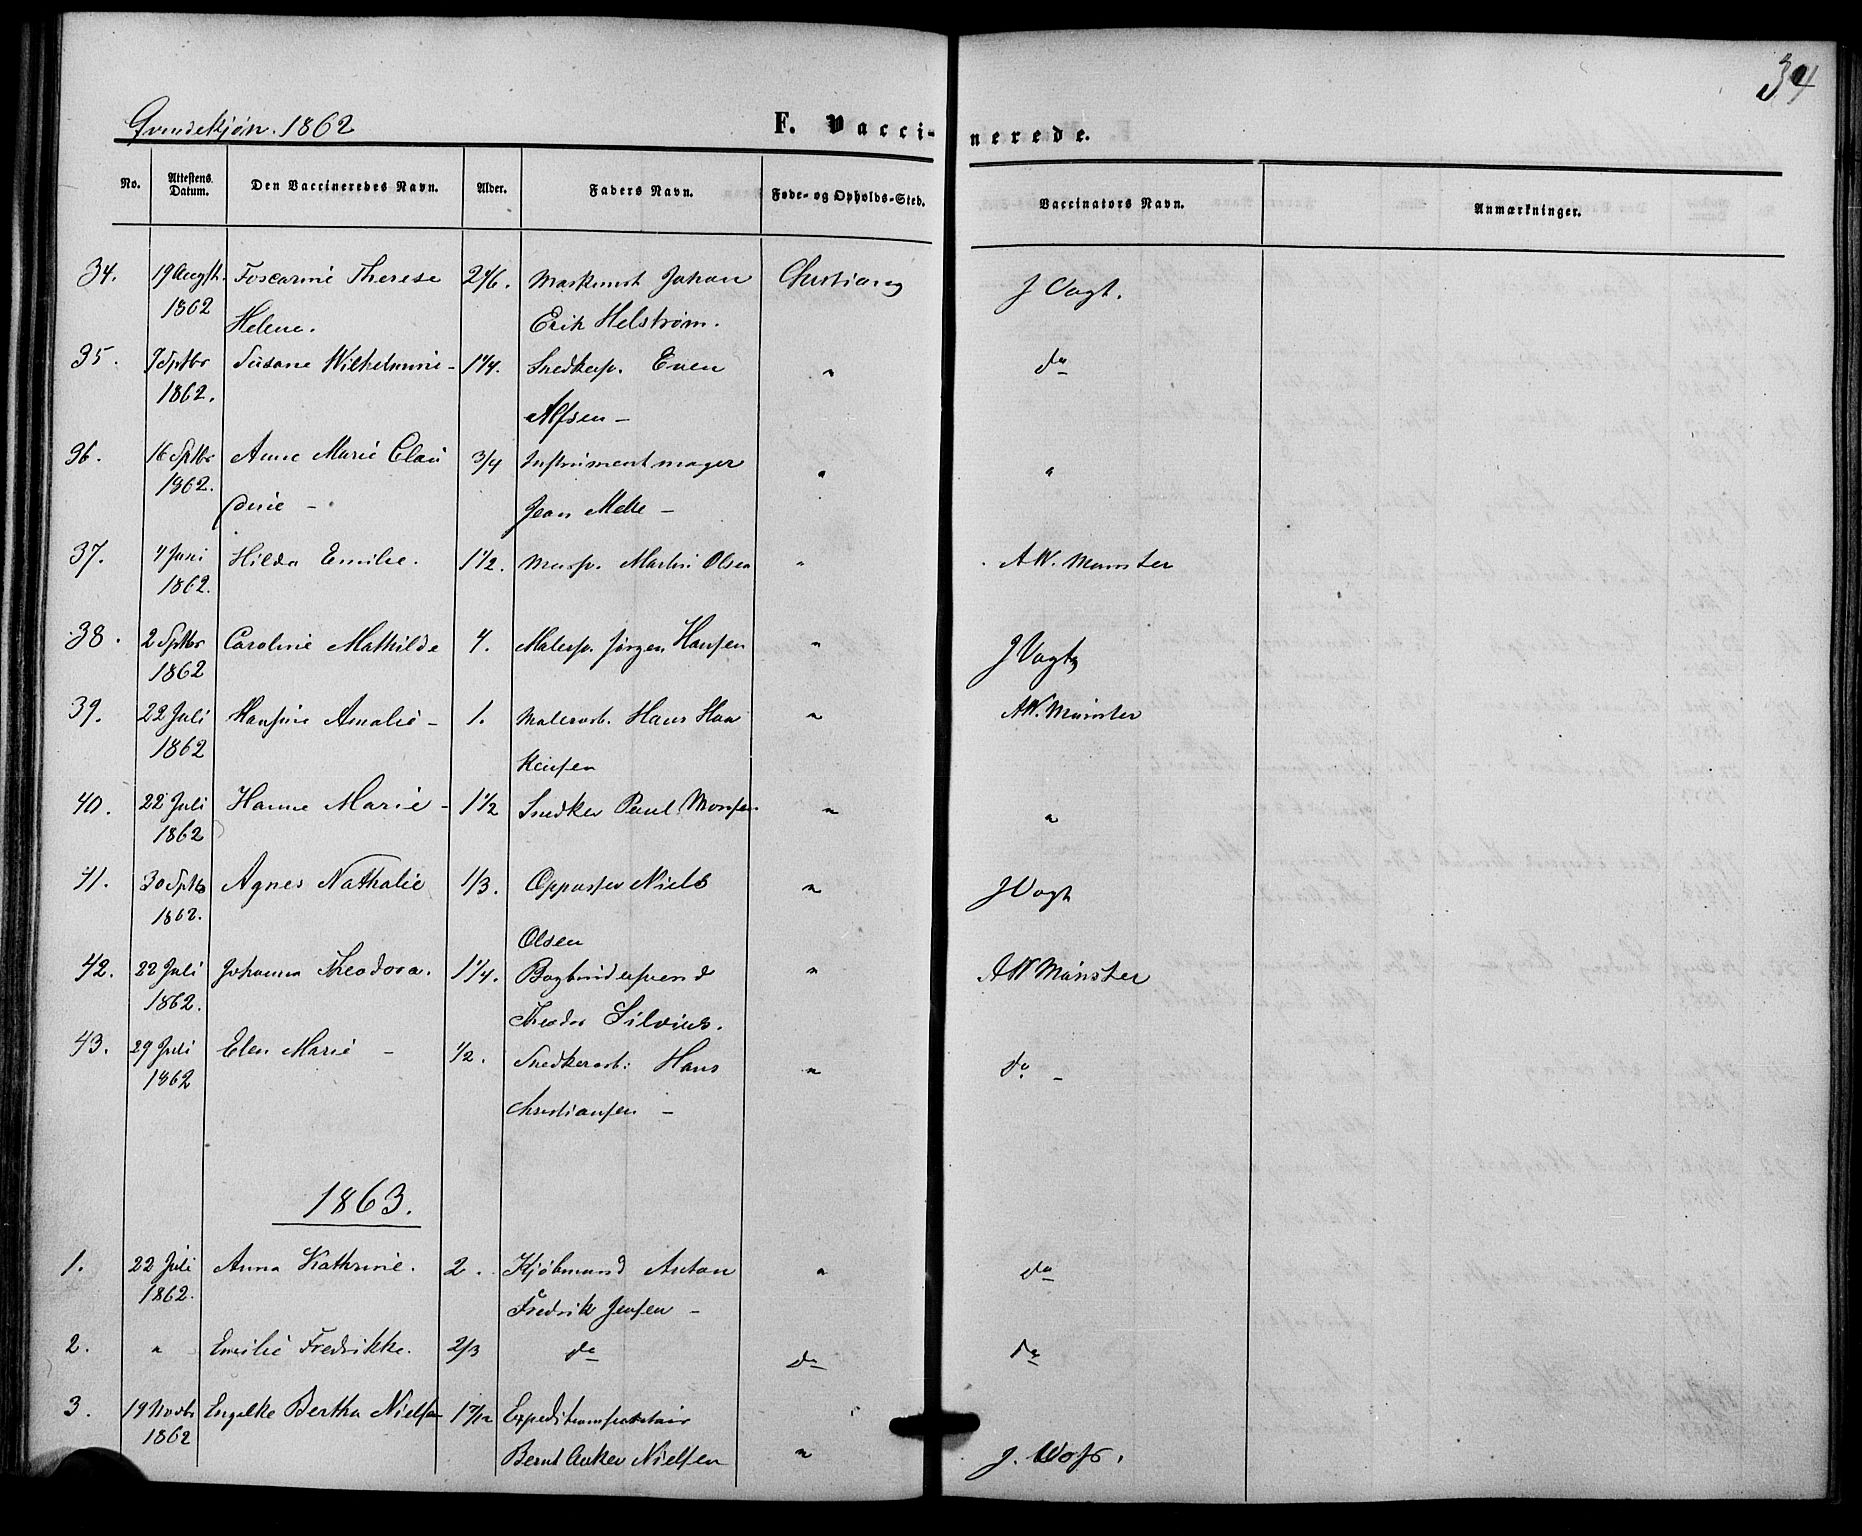 34
Qvindekjøn. 1862
F. Vaccinerede.
No. Attestens Datum. Den Vaccineredes Navn. Alder. Faders Navn. Føde- og Opholds-Sted. Vaccinators Navn. Anmærkninger.
34. 19 Augst. Foscarine Therese 2 4/6. Maskinist Johan Christiania J Vogt.
1862 Helene. Erik Helstrøm.
35. 7 Sptbr Susane Wilhelmine - 1 1/4. Snedkersv. Even " do
1862. Alfsen -
36. 16 Sptbr Anne Marie Clau 3/4 Instrumentmager " "
1862. dine - Jean
37. 4 Juni Hilda Emilie. 1 1/2. Martin Olsen " A W. Münster
1862.
38. 2 Sptbr Caroline Mathilde 4. Malersv. Jørgen Hansen " J Vogt
1862
39. 22 Juli Hansine Amalie - 1. Hans Haa " A W. Münster
1862 kensen
40. 22 Juli Hanne Marie - 1 1/2 Snedker Paul Monsen " "
1862
41. 30 Sptbr Agnes Nathalie 1/3. Oppasser Niels " J Vogt
1862. Olsen
42. 22 Juli Johanna Theodora. 1 1/4. Bogbindersvend " A W Münster
1862. Theodor Silvius.
43. 29 Juli Elen Marie - 1/2. Snedkerarb: Hans " do -
1862 Christiansen -
1863.
1. 22 Juli Anna Kathrine. 2. Kjøbmand Anton " do
1862. Fredrik Jensen -
2. " Emilie Fredrikke. 2/3 do do do
3. 19 Novbr Engelke Bertha Nielsen 1 7/12 Expeditionssecretair
1862 Bernt Anker Nielsen " J.